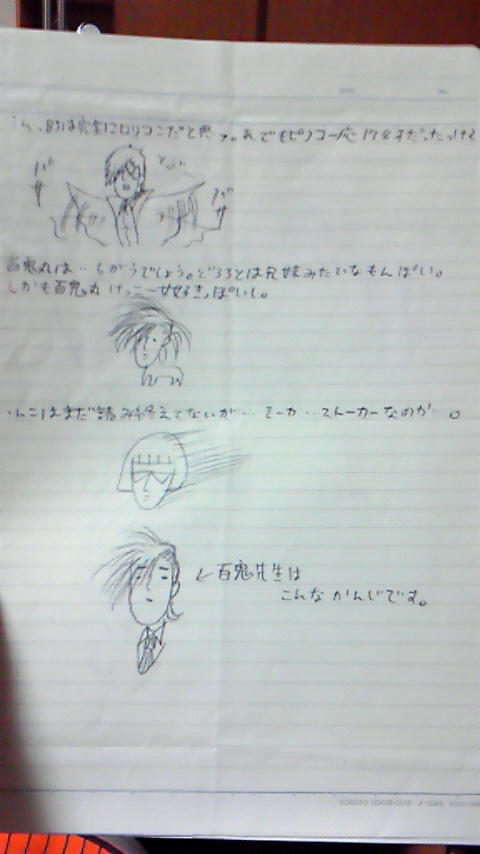 は完全にロリコンだと思う。あ、でもピノコ一応18才だったっけ
バサ
バサ
百鬼丸は…ちがうでしょう。どろろとは兄妹みたいなもんぽい。
しかも百鬼丸けっこー女好きっぽいし。
まだ読み終えてないが…ストーカーなのか。
←百鬼先生は
こんなかんじです。